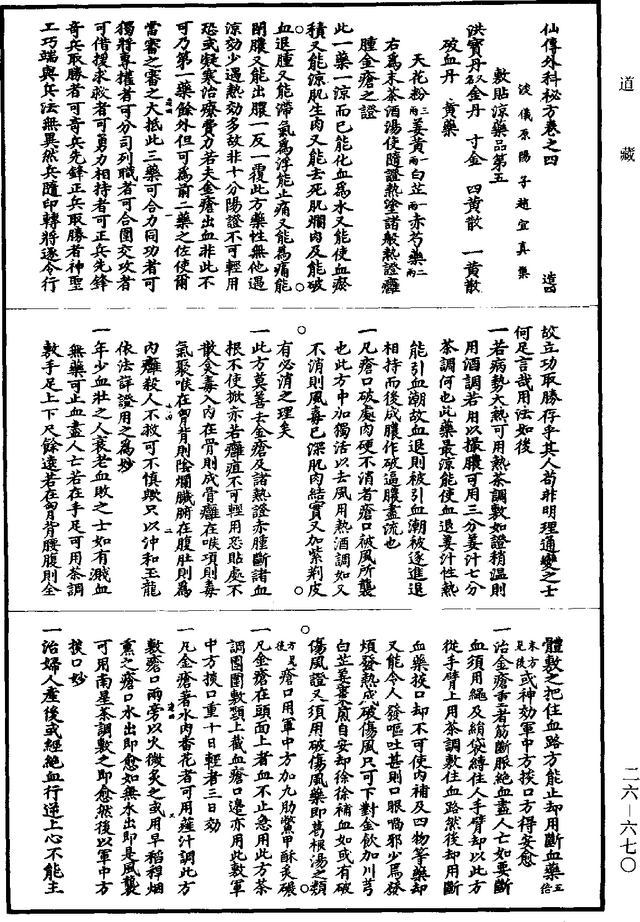 道藏
仙傳外科秘方卷之四 造四
浚儀原陽子趙宜真集
敷貼涼藥品第五
洪寶丹級金丹 寸金 四黃散 一黃散
破血丹 黃藥
天花粉三兩姜黃一兩白芷一兩赤芍藥二兩
右爲末茶酒湯使隨證熱塗諸般熱證癰
腫金瘡之證
此一藥一涼而已能化血爲水又能使血瘀
積又能涼肌生肉又能去死肌爛肉及能破
血退腫又能滯氣爲浮能止痛又能爲痛能
閉膿又能出膿一反一覆此方藥性無他過
涼効少遇熱効多故非十分陽證不可輕用
恐或凝寒治療費力若夫金瘡出血非此不
可乃第一藥餘外但可爲前二藥之佐使爾
當審之審之大抵此三藥可合力同功者可
獨將專權者可分司列職者可合圍交攻者
可借援求救者可勇力相持者可正兵先鋒
奇兵取勝者可奇兵先鋒正兵取勝者神聖
工巧端與兵法無異然兵隨印轉將逐令行
故立功取勝存乎其人苟非明理通變之士
何足言哉用法如後
一若病勢大熱可用熱茶調敷如證稍溫則
用酒調若用以撮膿可用三分姜汁七分
茶調何也此藥最涼能使血退姜汁性熱
能引血潮故血退則被引血潮被逐進退
相持而後成膿作破逼膿盡流也
一凡瘡口破處肉硬不消者瘡口被風所襲
也此方中加獨活以去風用熱酒調如又
不消則風毒已深肌肉結實又加紫荆皮
有必消之理矣
一此方莫善去金瘡及諸熱證赤腫斷諸血
根不使掀亦若癰疽不可輕用恐貼處不
散攻毒入內在骨則成骨癰在喉項則毒
氣聚喉在胷背則陰爛臟腑在腹肚則爲
內癰殺人不救可不慎歟只以沖和玉龍
依法詳證用之爲妙
一年少血壯之人衰老血敗之士如有溅血
無藥可止血盡人亡若在手足可用茶調
敷手足上下尺餘遠若在胷背腰腹則全
體敷之把住血路方能止却用斷血藥五倍
末方見後或神効軍中方捘口方得安愈
一治金瘡重者筋斷脈絕血盡人亡如要斷
血須用繩及絹袋縛住人手臂却以此方
從手臂上用茶調敷住血路然後却用斷
血藥捘口却不可使內補及四物等藥却
又能令人發嘔吐甚則口眼喎邪少爲發
煩發熱成破傷風只可下對金飲加川芎
白芷姜棗煎自安却徐徐補血如或有破
傷風證又須用破傷風藥即葛根湯之類
方見後瘡口用軍中方加九肋鱉甲酥炙碾
一凡金瘡在頭面上者血不止急用此方茶
調團圍敷頸上截血瘡口邊亦用此敷軍
中方捘口重十日輕者三日効
一凡金瘡著水肉番花者可用薤汁調此方
敷瘡口兩旁以火微炙之或用早稻稈烟
熏之瘡口水出即愈如無水出即是風襲
可用南星茶調敷之即愈然後以軍中方
捘口妙
一治婦人產後或經絕血行逆上心不能主
二六—六七〇